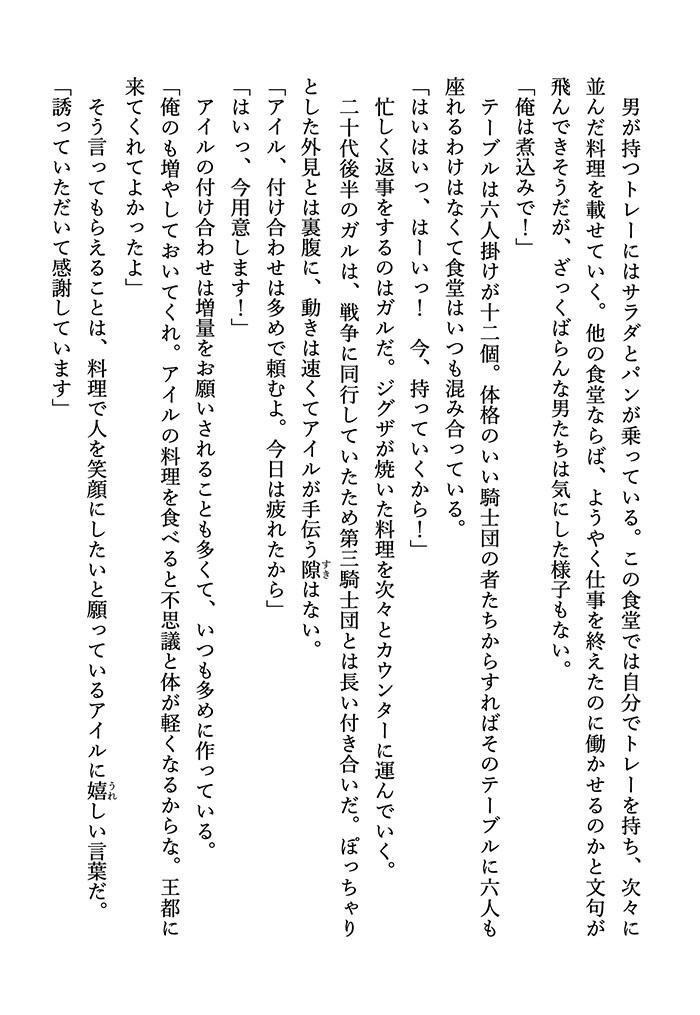 男が持つトレーにはサラダとパンが乗っている。この食堂では自分でトレーを持ち、次々に
並んだ料理を載せていく。他の食堂ならば、ようやく仕事を終えたのに働かせるのかと文句が
飛んできそうだが、ざっくばらんな男たちは気にした様子もない。
「俺は煮込みで！」
　テーブルは六人掛けが十二個。体格のいい騎士団の者たちからすればそのテーブルに六人も
座れるわけはなくて食堂はいつも混み合っている。
「はいはいっ、はーいっ！　今、持っていくから！」
　忙しく返事をするのはガルだ。ジグザが焼いた料理を次々とカウンターに運んでいく。
　二十代後半のガルは、戦争に同行していたため第三騎士団とは長い付き合いだ。ぽっちゃり
とした外見とは裏腹に、動きは速くてアイルが手伝う隙はない。
「アイル、付け合わせは多めで頼むよ。今日は疲れたから」
「はいっ、今用意します！」
　アイルの付け合わせは増量をお願いされることも多くて、いつも多めに作っている。
「俺のも増やしておいてくれ。アイルの料理を食べると不思議と体が軽くなるからな。王都に
来てくれてよかったよ」
　そう言ってもらえることは、料理で人を笑顔にしたいと願っているアイルに嬉しい言葉だ。
「誘っていただいて感謝しています」